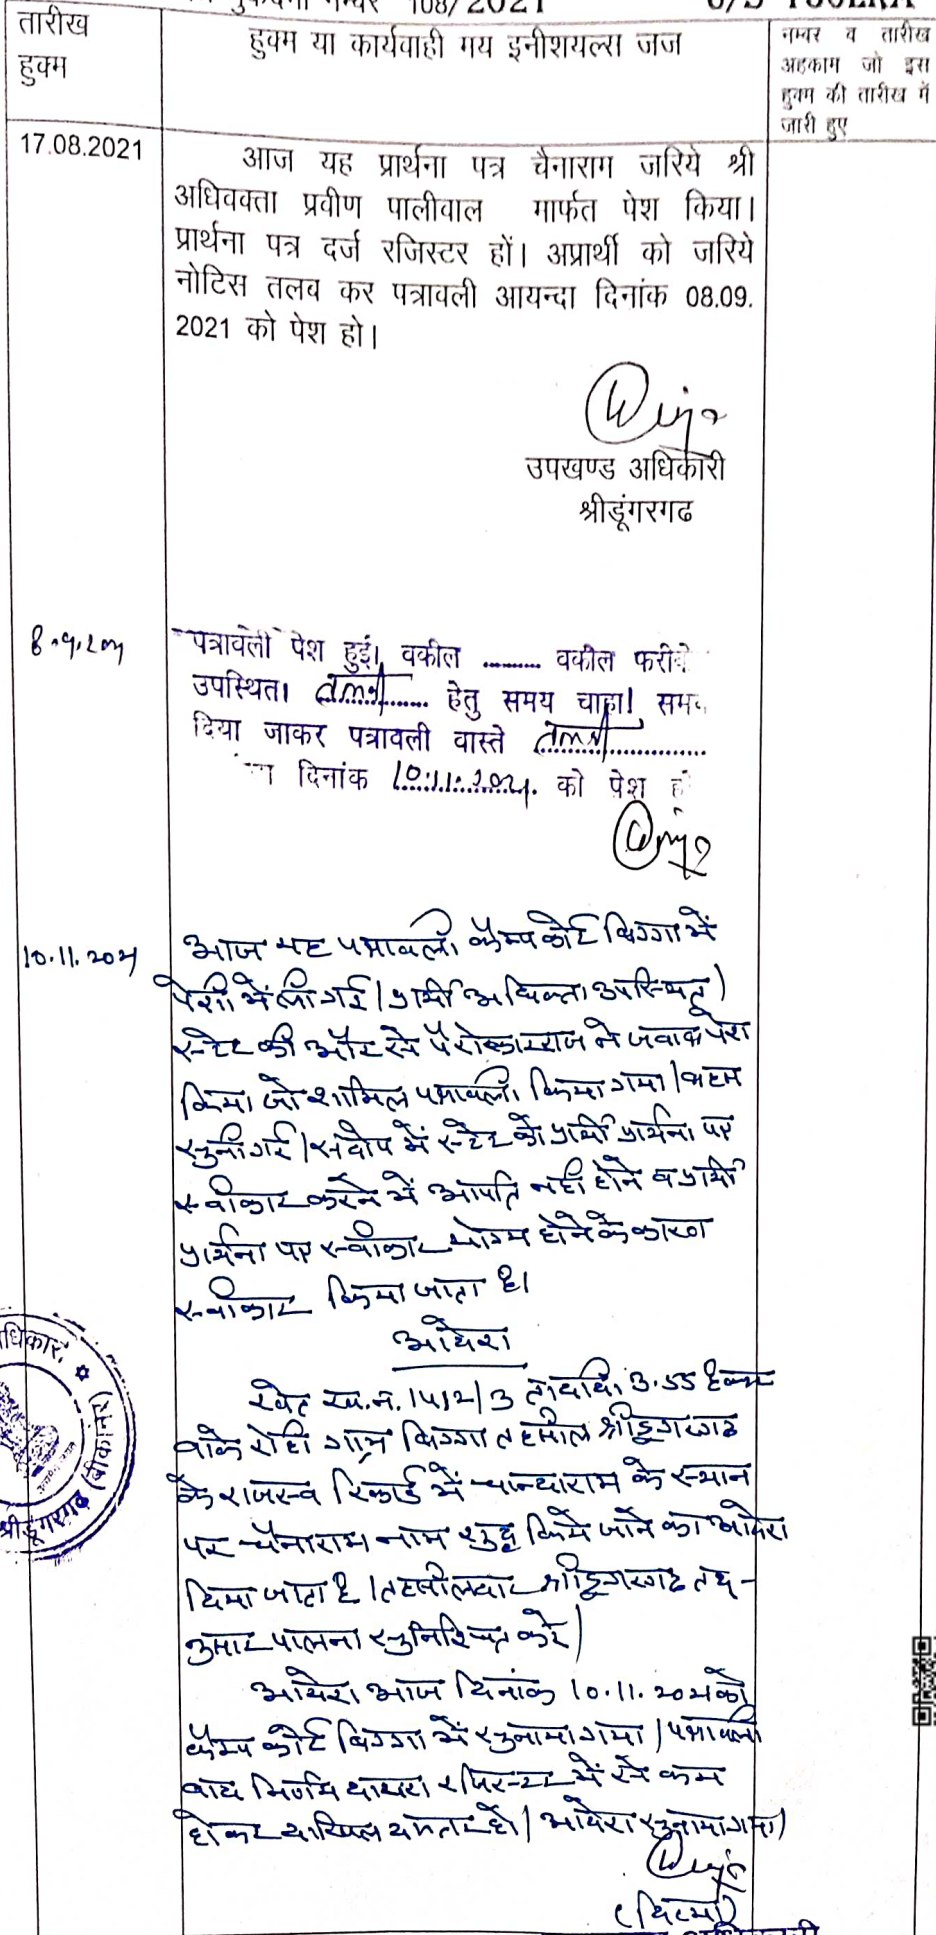 मुकदमा नम्बर 108/2021
तारीख
हुक्म
हुक्म या कार्यवाही मय इनीशयल्स जज
नम्बर व तारीख
अहकाम जो इस
हुक्म की तारीख में
जारी हुए
17.08.2021
आज यह प्रार्थना पत्र चैनाराम जरिये श्री
अधिवक्ता प्रवीण पालीवाल मार्फत पेश किया।
प्रार्थना पत्र दर्ज रजिस्टर हों। अप्रार्थी को जरिये
नोटिस तलब कर पत्रावली आयन्दा दिनांक 08.09.
2021 को पेश हो।
उपखण्ड अधिकारी
श्रीडूंगरगढ
8.9.2021
पत्रावली पेश हुई। वकील .......... वकील फरी
उपस्थित। तामील हेतु समय चाहा। समय
दिया जाकर पत्रावली वास्ते तामील
दिनांक 10.11.2021. को पेश हो
10.11.2021
आज यह पत्रावली कैम्प कोर्ट बिग्गा में
पेशी में ली गई। प्रार्थी अधिवक्ता उपस्थित।
स्टेट की और से पैरोकारराज ने जवाब पेश
किया जो शामिल पत्रावली किया गया। बहस
सुनी गई। संक्षेप में स्टेट को प्रार्थी प्रार्थना पत्र
स्वीकार करने में आपति नहीं होने व प्रार्थी
प्रार्थना पत्र स्वीकार योग्य होने के कारण
स्वीकार किया जाता है।
आदेश
खेत ख.न. 1412/3 तादादी 3.55 हैक्टर
वाके रोही ग्राम बिग्गा तहसील श्रीडूंगरगढ
के राजस्व रिकार्ड में चान्दाराम के स्थान
पर चैनाराम नाम शुद्ध किये जाने का आदेश
दिया जाता है। तहसीलदार श्रीडूंगरगढ तद-
नुसार पालना सुनिश्चित करे।
आदेश आज दिनांक 10.11.2021 को
कैम्प कोर्ट बिग्गा में सुनाया गया। पत्रावली
बाद निर्णय दायरा रजिस्टर में से कम
होकर दाखिल दफ्तर हो। आदेश सुनाया गया।
(दिव्या)
श्रीडूंगरगढ़ (बीकानेर)